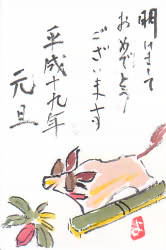 明けまして
おめでとう
ございます
平成十九年
元旦
よ